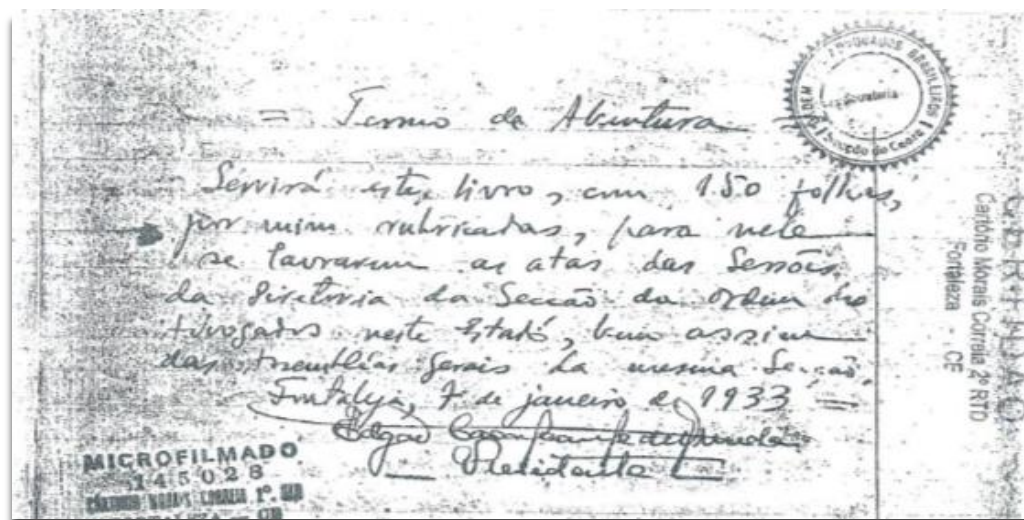 = Termo de Abertura =
Servirá este livro, com 150 folhas,
por mim rubricadas, para nele
se lavrarem as atas das Sessões
da Diretoria da Secção da Ordem dos
Advogados neste Estado, bem assim
das Assembléas Gerais da mesma Secção.
Fortaleza, 7 de janeiro de 1933 =
Edgar Cavalcante de Arruda
Presidente
ADVOGADOS BRASILEIROS
Secretaria
Secção do Ceará
CERTIDÃO
Cartório Morais Correia 2º RTD
Fortaleza - CE
MICROFILMADO
145028